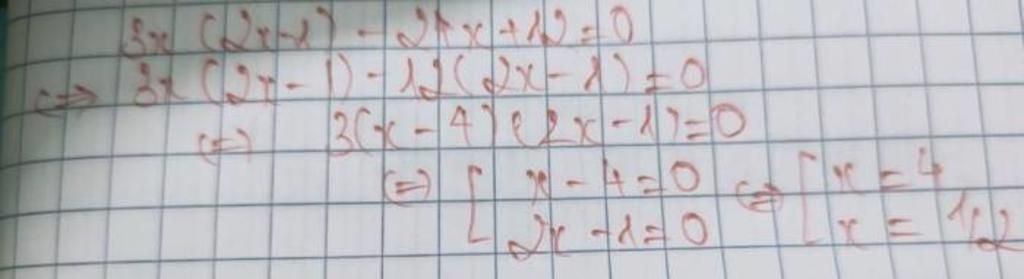 3x(2x-1) - 24x+12=0
⇔ 3x(2x-1)-12(2x-1)=0
⇔ 3(x-4)(2x-1)=0
⇔ [ x-4=0 ⇔ [ x=4
2x-1=0 x = 1/2